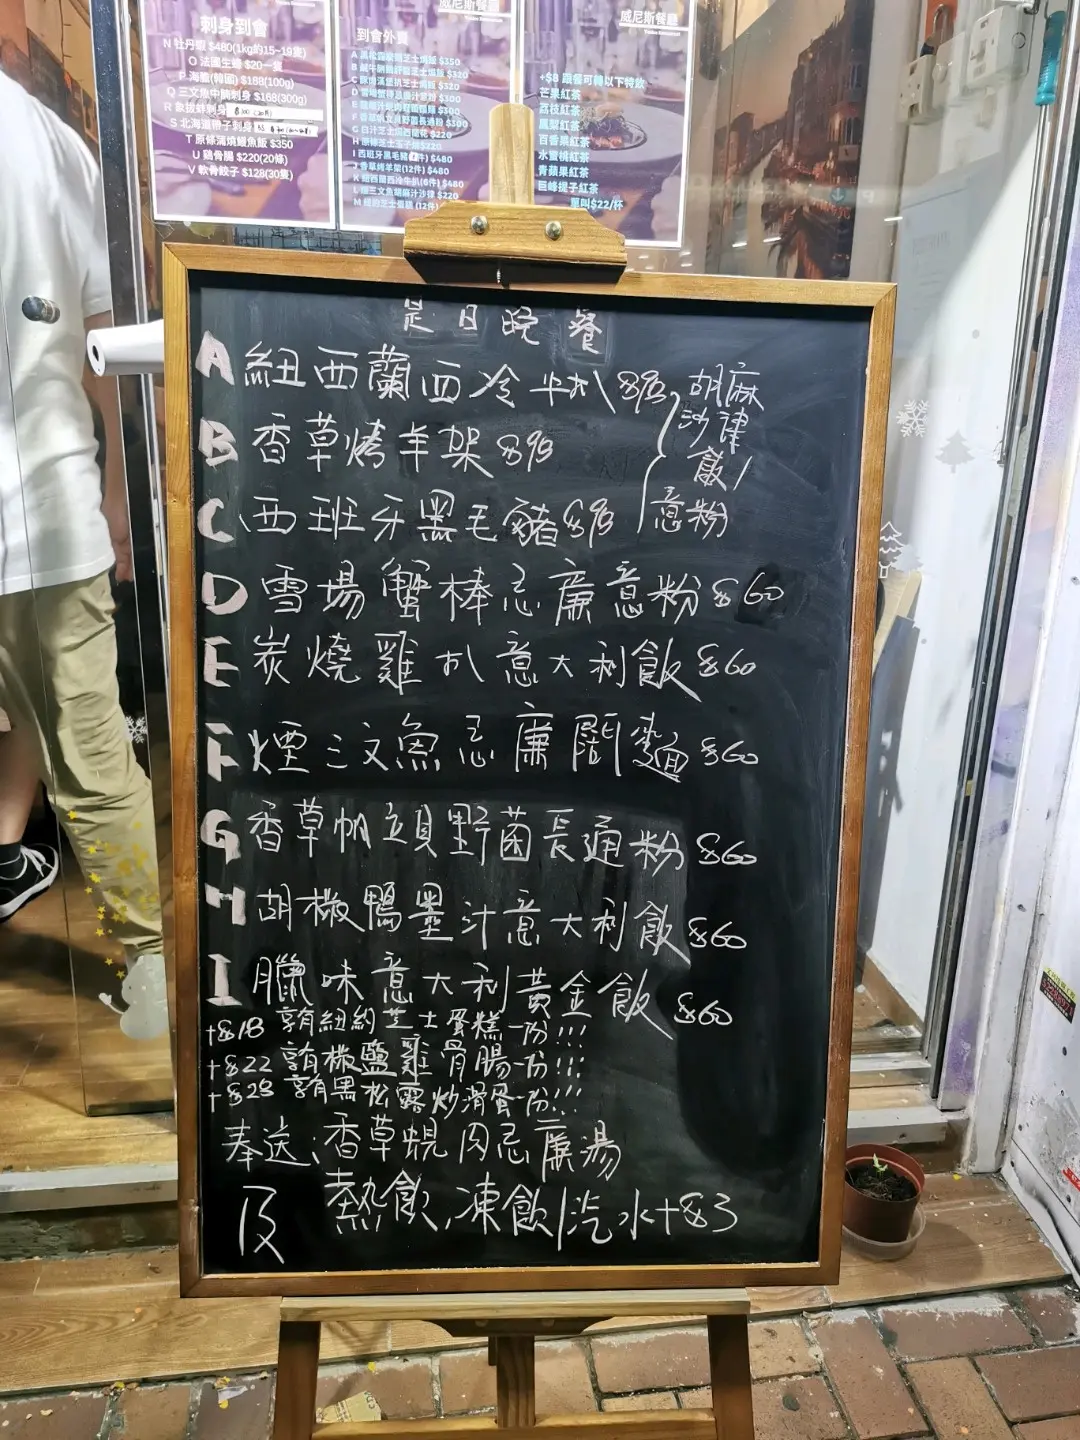 威尼斯餐廳
刺身到會
N 牡丹蝦 $480(1kg約15~19隻)
O 法國生蠔 $20一隻
P 海膽(韓國) $188(100g)
Q 三文魚中腩刺身 $168(300g)
R 象拔蚌刺身
S 北海道帶子刺身
T 原條蒲燒鰻魚飯 $350
U 雞骨腸 $220(20條)
V 軟骨餃子 $128(30隻)
到會外賣
I 西班牙黑毛豬
J 香草烤羊架(12件) $480
K 紐西蘭西冷牛扒(6件) $480
L 煙三文魚胡麻汁沙律 $220
M 紐約芝士蛋糕 (12件)
威尼斯餐廳
+$8 跟餐可轉以下特飲
芒果紅茶
荔枝紅茶
鳳梨紅茶
百香果紅茶
水蜜桃紅茶
青蘋果紅茶
巨峰提子紅茶
單叫$22/杯
是日晚餐
A 紐西蘭西冷牛扒 $98
B 香草烤羊架 $98
C 西班牙黑毛豬 $98
胡麻
沙律
飯/
意粉
D 雪場蟹棒忌廉意粉 $60
E 炭燒雞扒意大利飯 $60
F 煙三文魚忌廉闊麵 $60
G 香草帆立貝野菌長通粉 $60
H 胡椒鴨墨汁意大利飯 $60
I 臘味意大利黃金飯 $60
+$18 享有紐約芝士蛋糕一份!!!
+$22 享有椒鹽雞骨腸一份!!!
+$28 享有黑松露炒滑蛋一份!!!
奉送:香草蜆肉忌廉湯
及 熱飲,凍飲/汽水+$3